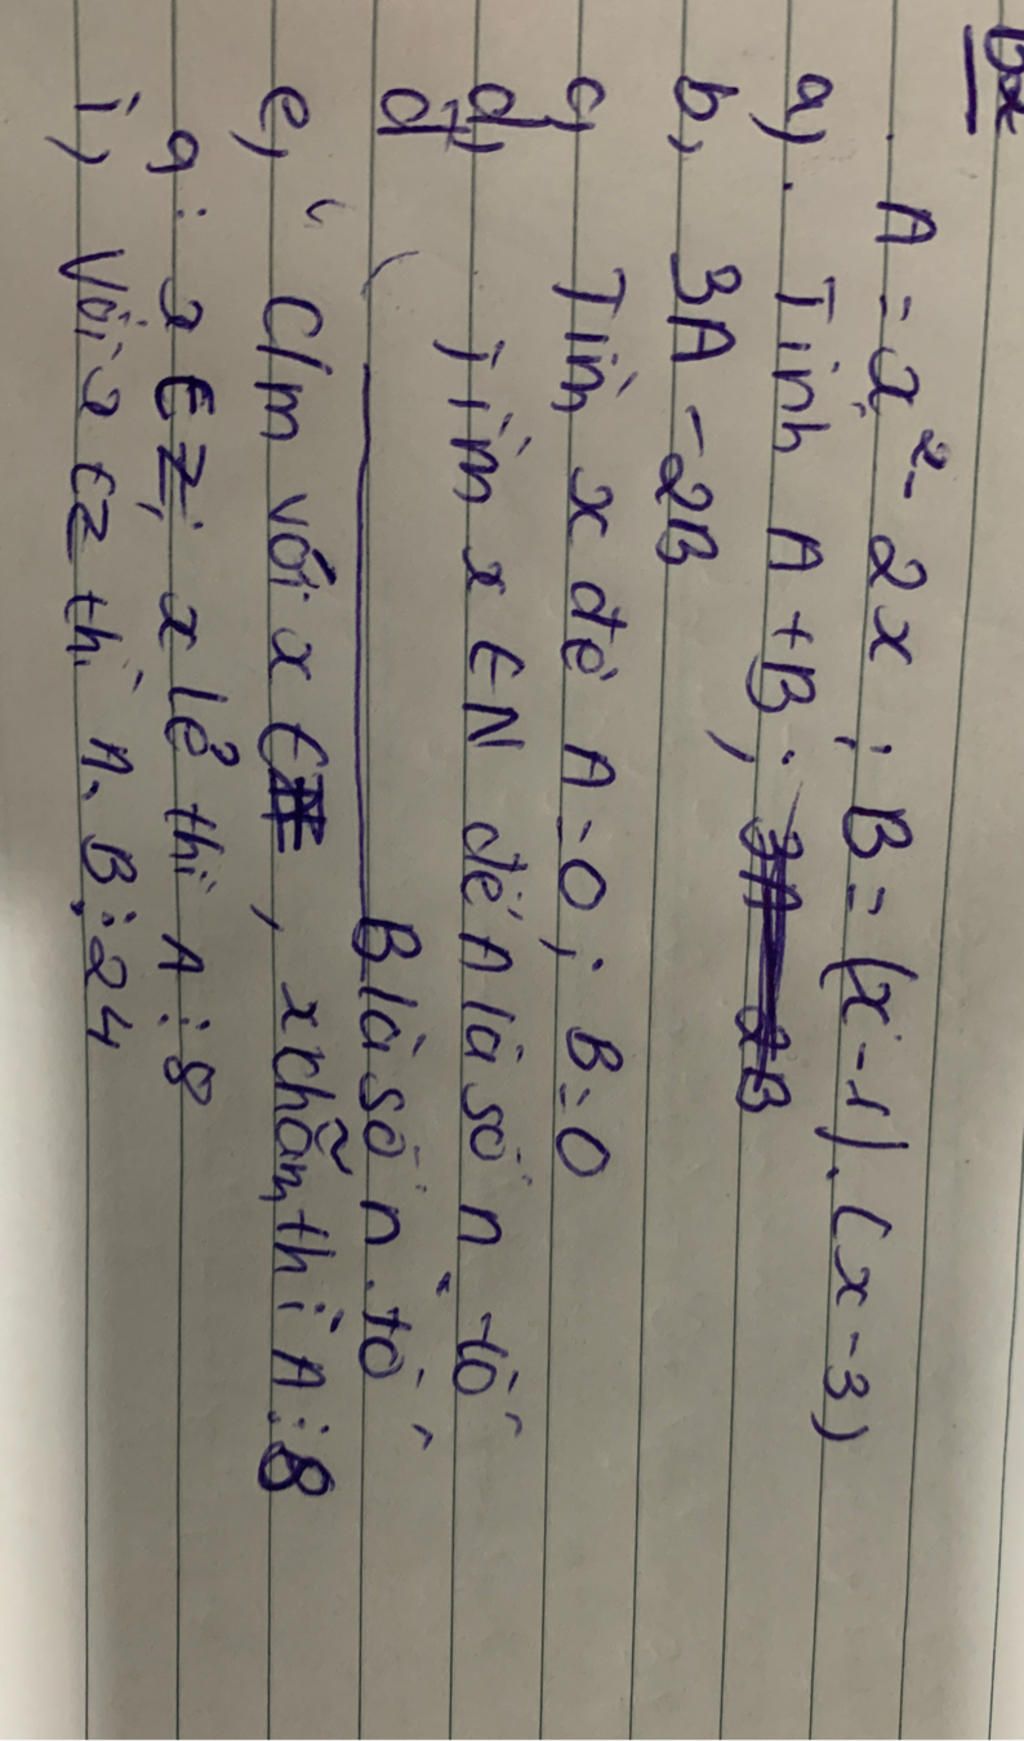 A = x² - 2x ; B = (x-1).(x-3)
a). Tính A + B;
b, 3A - 2B
c, Tìm x để A = 0 ; B = 0
d, Tìm x ∈ N để A là số n tố
đ, B là số n.tố
e, C/m với x ∈ , x chẵn thì A ⋮ 8
g: x ∈ Z; x lẻ thì A ⋮ 8
i, Với x ∈ Z thì A.B ⋮ 24